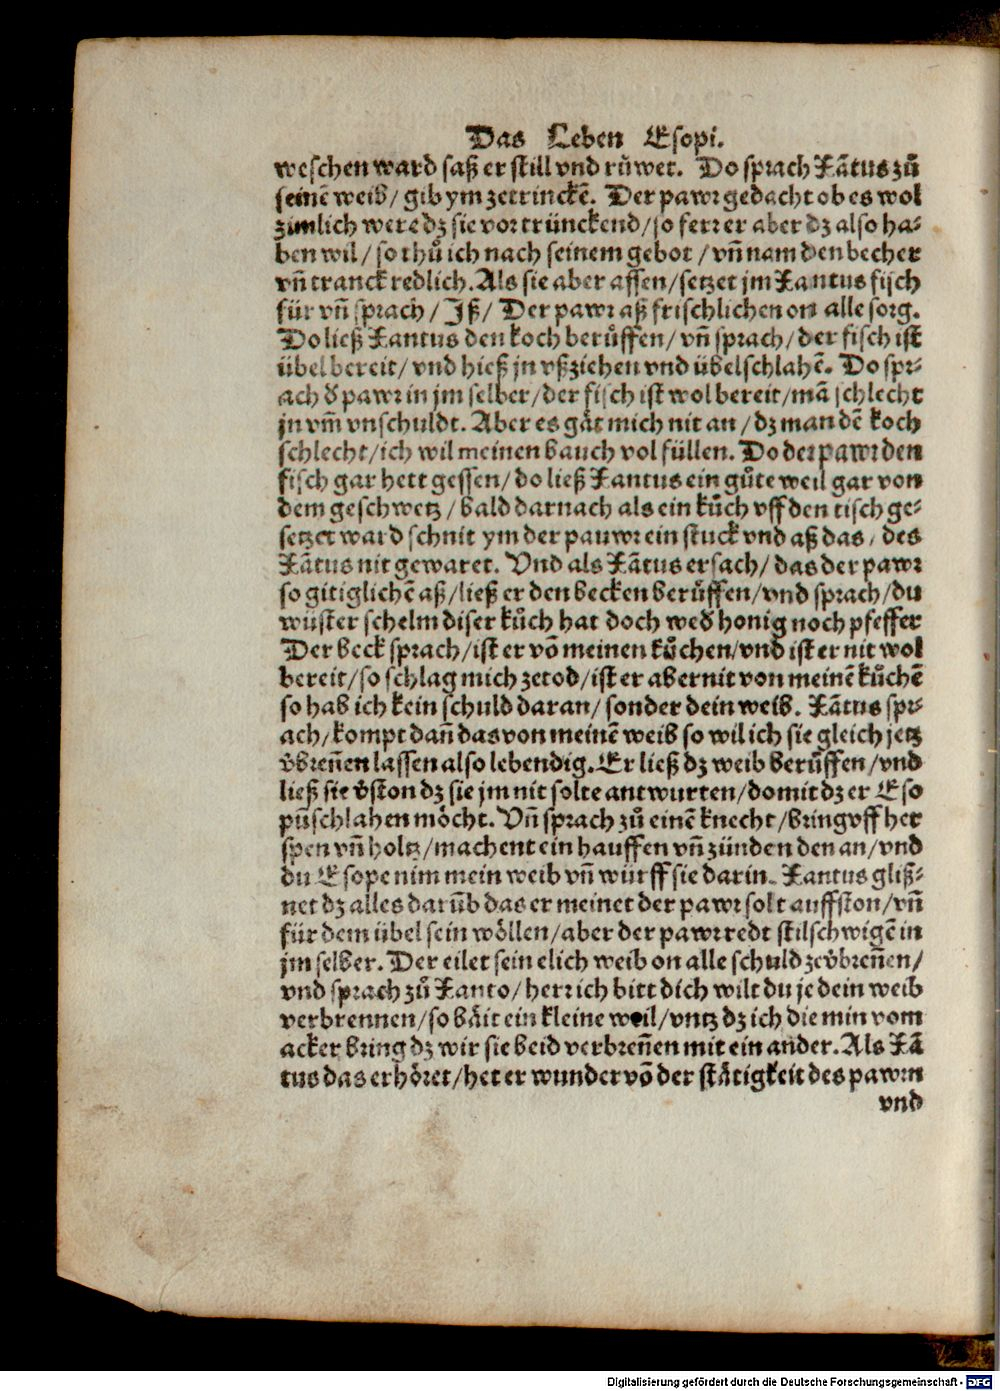 Das Leben Esopi.
weschen ward saß er still vnd růwet. Do sprach Xãtus zů
seinẽ weib/ gib ym zetrinckẽ. Der pawr gedacht ob es wol
zimlich were dz sie vor trünckend/ so ferr er aber dz also ha⸗
ben wil/ so thů ich nach seinem gebot/ vñ nam den becher
vñ tranck redlich. Als sie aber assen/ setzet jm Xantus fisch
für vñ sprach/ Iß/ Der pawr aß frischlichen on alle sorg.
Do ließ Xantus den koch berůffen/ vñ sprach/ der fisch ist
übel bereit/ vnd hieß jn vßziehen vnd übel schlahẽ. Do spr⸗
ach d̕ pawr in jm selber/ der fisch ist wol bereit/ mã schlecht
jn vm̃ vnschuldt. Aber es gåt mich nit an/ dz man dẽ koch
schlecht/ ich wil meinen bauch vol füllen. Do der pawr den
fisch gar hett gessen/ do ließ Xantus ein gůte weil gar von
dem geschwetz/ bald darnach als ein kůch vff den tisch ge⸗
setzet ward schnit ym der pauwr ein stuck vnd aß das/ des
Xãtus nit gewaret. Vnd als Xãtus ersach/ das der pawr
so gitiglichẽ aß/ ließ er den becken berůffen/ vnd sprach/ du
wüster schelm diser kůch hat doch wed̕ honig noch pfeffer
Der beck sprach/ ist er võ meinen kůchen/ vnd ist er nit wol
bereit/ so schlag mich zetod/ ist er aber nit von meinẽ kůchẽ
so hab ich kein schuld daran/ sonder dein weib. Xãtus spr⸗
ach/ kompt dañ das von meinẽ weib so wil ich sie gleich jetz
v̕breñen lassen also lebendig. Er ließ dz weib berůffen/ vnd
ließ sie v̕ston dz sie jm nit solte antwurten/ do mit dz er Eso
pũ schlahen möcht. Vñ sprach zů einẽ knecht/ bring vff her
spen vñ holtz/ machent ein hauffen vñ zünden den an/ vnd
du Esope nim mein weib vñ würff sie darin. Xantus gliß⸗
net dz alles darũb das er meinet der pawr solt auffston/ vñ
für dem übel sein wöllen/ aber der pawr redt stilschwigẽ in
jm selber. Der eilet sein elich weib on alle schuld zev̕breñen/
vnd sprach zů Xanto/ herr ich bitt dich wilt du je dein weib
verbrennen/ so båit ein kleine weil/ vntz dz ich die min vom
acker bring dz wir sie beid verbreñen mit ein ander. Als Xã
tus das erhöret/ het er wunder võ der ståtigkeit des pawrn
vnd
Digitalisierung gefördert durch die Deutsche Forschungsgemeinschaft - DFG